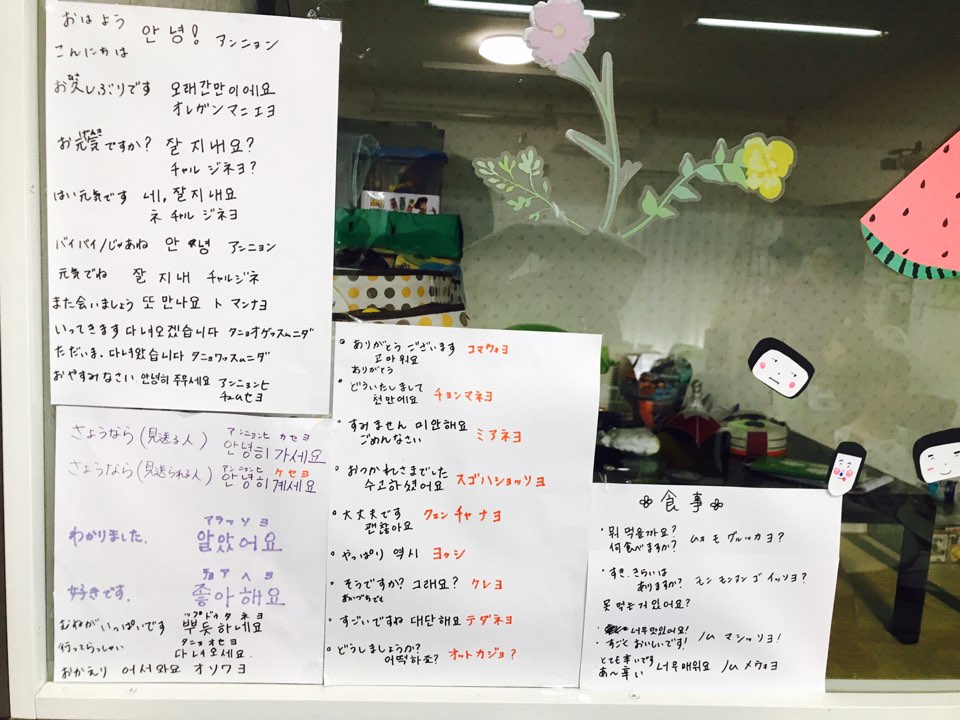 おはよう 안녕! アンニョン
こんにちは
お久しぶりです 오래간만이에요
オレガンマニエヨ
お元気ですか? 잘 지내요?
チャル ジネヨ?
はい元気です 네, 잘지내요
ネ チャル ジネヨ
バイバイ/じゃあね 안녕 アンニョン
元気でね 잘 지내 チャルジネ
また会いましょう 또 만나요 ト マンナヨ
いってきます 다녀오겠습니다 タニョオゲッスムニダ
ただいま. 다녀왔습니다 タニョワッスムニダ
おやすみなさい 안녕히 주무세요 アンニョンヒ
チュムセヨ
アンニョンヒ カセヨ
さようなら(見送る人) 안녕히 가세요
アンニョンヒ ケセヨ
さようなら(見送られる人) 안녕히 계세요
アラッソヨ
わかりました. 알았어요
チョアヘヨ
好きです. 좋아해요
むねがいっぱいです 뿌듯하네요
タニョオセヨ
行ってらっしゃい 다녀오세요.
おかえり 어서와요 オソワヨ
ありがとうございます コマウォヨ
고마워요
ありがとう
どういたしまして
천만에요 チョンマネヨ
すみません 미안해요 ミアネヨ
ごめんなさい
おつかれさまでした
수고하셨어요 スゴハショッソヨ
大丈夫です
괜찮아요 クェンチャナヨ
やっぱり 역시 ヨッシ
そうですか? 그래요? クレヨ?
あいづちでも
すごいですね 대단해요 テダネヨ
どうしましょうか?
어떡하죠? オットカジョ?
食事
뭐 먹을까요?
何食べますか? ムォ モグルッカヨ?
すき.きらいは
ありますか? モン モンマンゴ イッソヨ?
못 먹는거 있어요?
너무맛있어요!
すごくおいしいです! ノム マシッソヨ!
とても辛いです
あ〜辛い 너무매워요 ノム メウォヨ